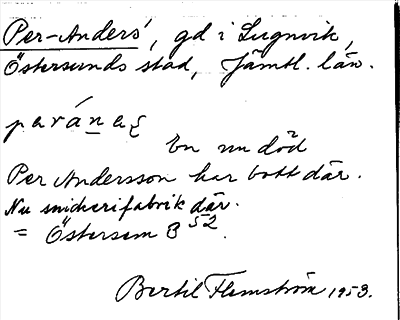 Per-Anders', gd i Lugnvik,
Östersunds stad, Jämtl. län.
paránaʂ
En nu död
Per Andersson har bott där.
Nu snickerifabrik där.
= Östersom 8 52.
Bertil Flemström 1953.